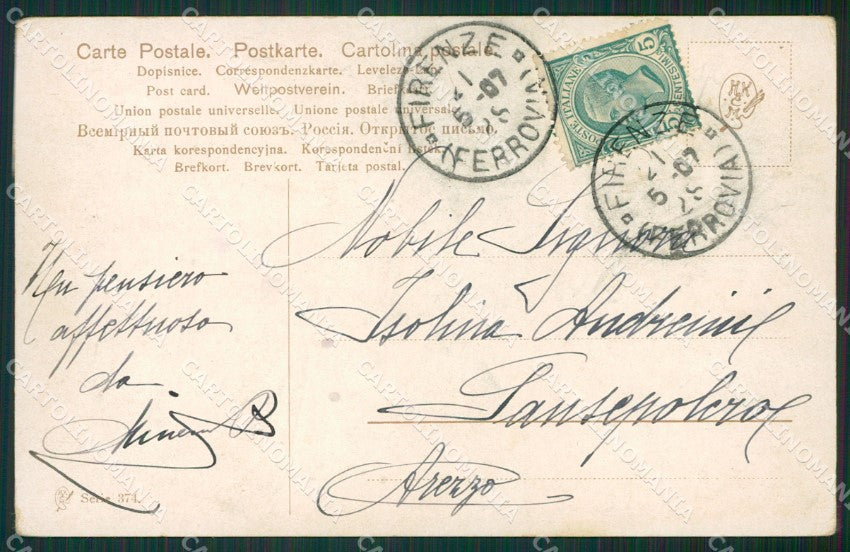 Carte Postale. Postkarte. Cartolina postale.
Dopisnice. Correspondenzkarte. Levelez-
Post card. Weltpostverein. Briefk
Union postale universelle. Unione postale universale
Всемірный почтовый союзъ. Россія. Открытое письмо.
Karta korespondencyjna. Korespondenční lístek.
Brefkort. Brevkort. Tarjeta postal.
FIRENZE
(FERROVIA)
5-07
POSTE ITALIANE
CENTESIMI 5
FIRENZE
(FERROVIA)
5-07
Un pensiero
affettuoso
da
B
Nobile Signora
Isolina Andreini
Sansepolcro
Arezzo
Serie 374.
CARTOLINOMANIA